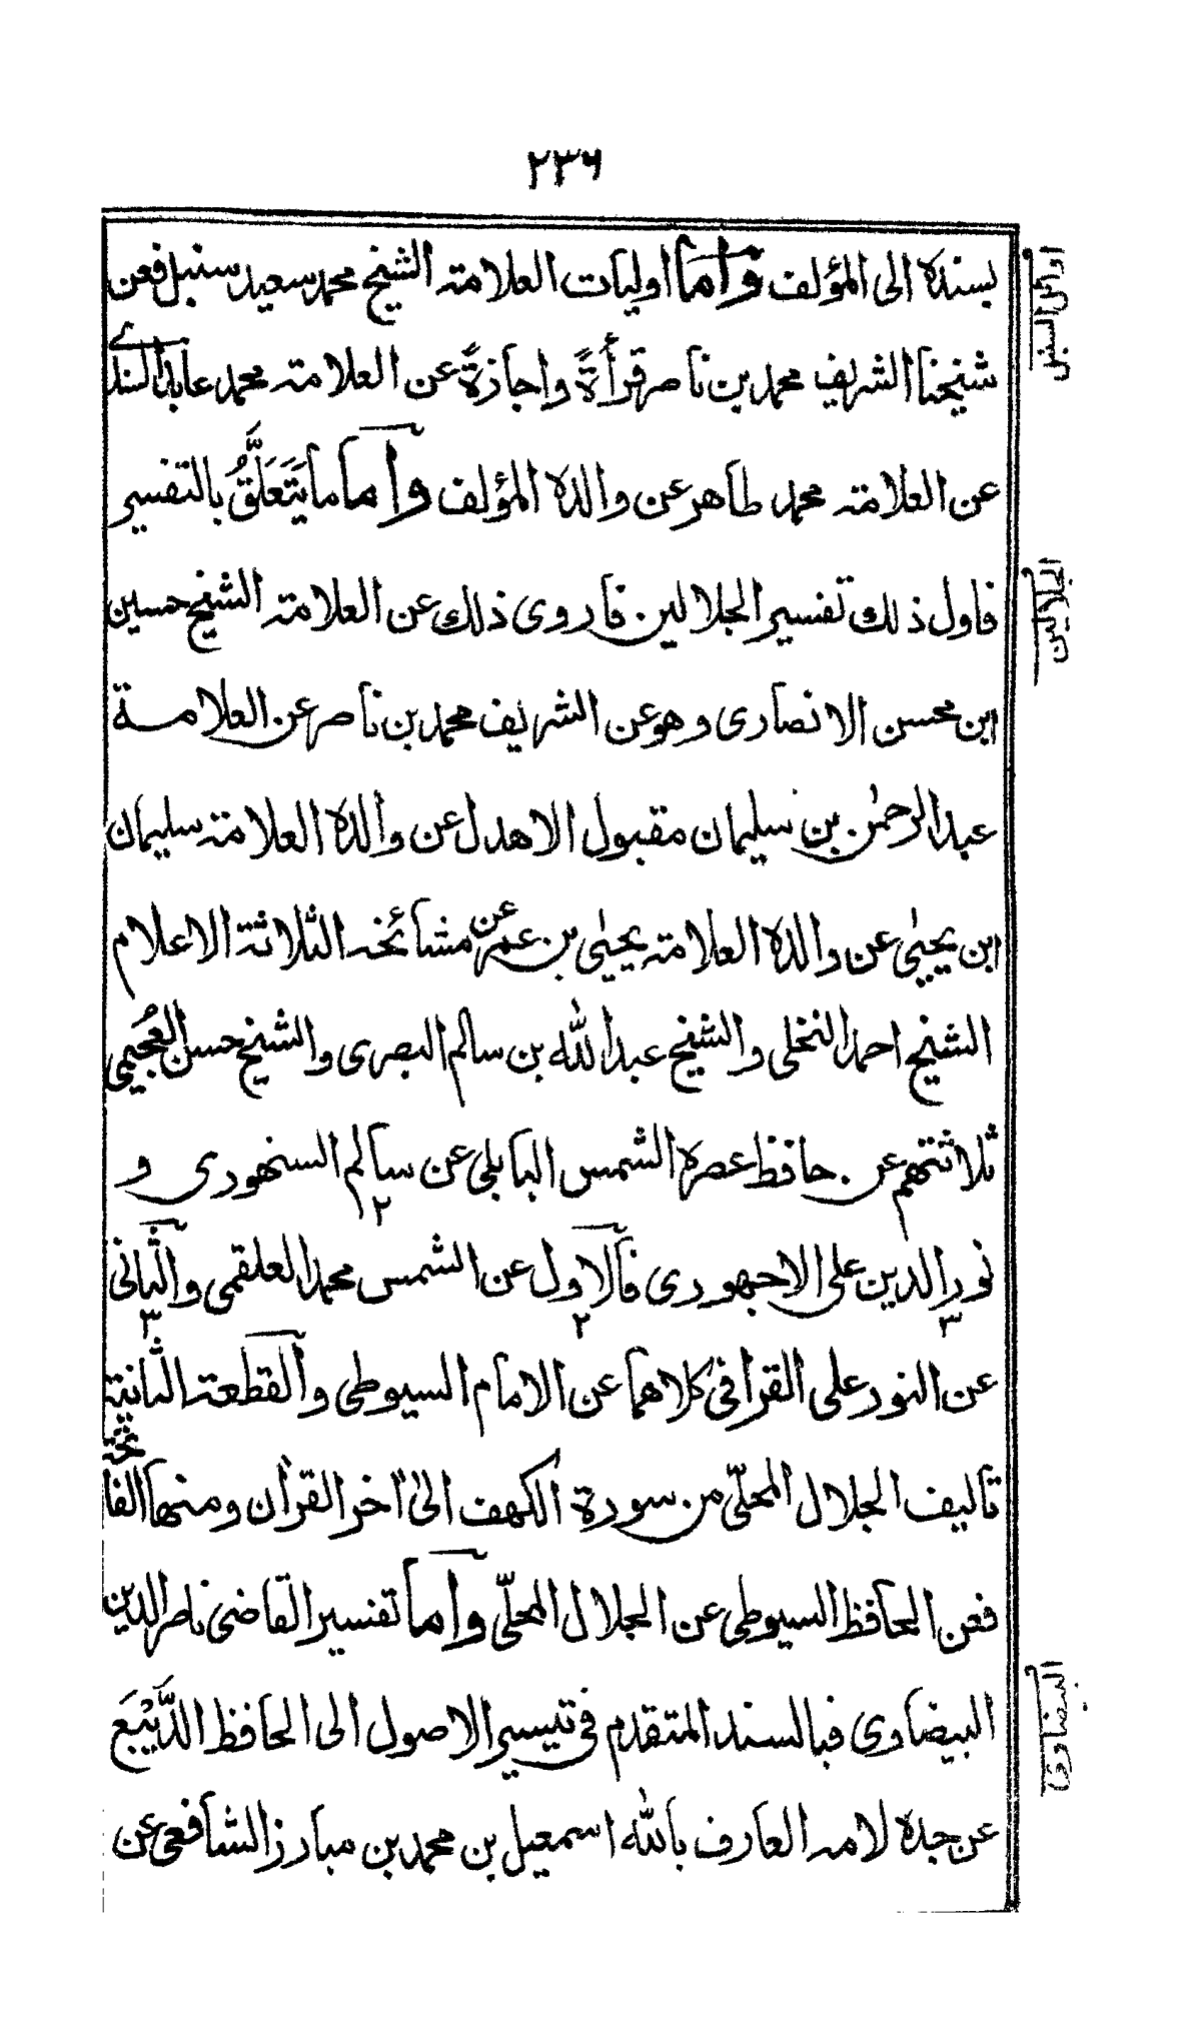 ٢٣٦
بسنده الى المؤلف وأما اوليات العلامة الشيخ محمد سعيد سنبل فعن
شيخنا الشريف محمد بن ناصر قرأةً واجازةً عن العلامة محمد عابد السندى
عن العلامة محمد طاهر عن والده المؤلف وأما ما يَتَعَلَّقُ بالتفسير
فاول ذلك تفسير الجلالين فاروى ذلك عن العلامة الشيخ حسين
ابن محسن الانصارى وهو عن الشريف محمد بن ناصر عن العلامة
عبد الرحمٰن بن سليمان مقبول الاهدل عن والده العلامة سليمان
ابن يحيٰى عن والده العلامة يحيٰى بن عمر عن مشائخه الثلاثة الاعلام
الشيخ احمد النخلى والشيخ عبد الله بن سالم البصرى والشيخ حسن العُجَيمى
ثلاثتهم عن حافظ عصره الشمس البابلى عن سالم السنهورى و
٢
نور الدين على الاجهورى فالاول عن الشمس محمد العلقمى والثانى
٣ ٢ ٣
عن النور على القرافى كلاهما عن الامام السيوطى والقطعة الثانية
تاليف الجلال المحلّى من سورة الكهف الىٰ اٰخر القراٰن ومنها الفاتحة
فعن الحافظ السيوطى عن الجلال المحلّى وأما تفسير القاضى ناصر الدين
البيضاوى فبالسند المتقدم فى تيسير الاصول الى الحافظ الدَّيْبَع
عن جده لامه العارف بالله اسمعيل بن محمد بن مبارز الشافعى عن
اوائل السنبل
الجلالين
البيضاوى